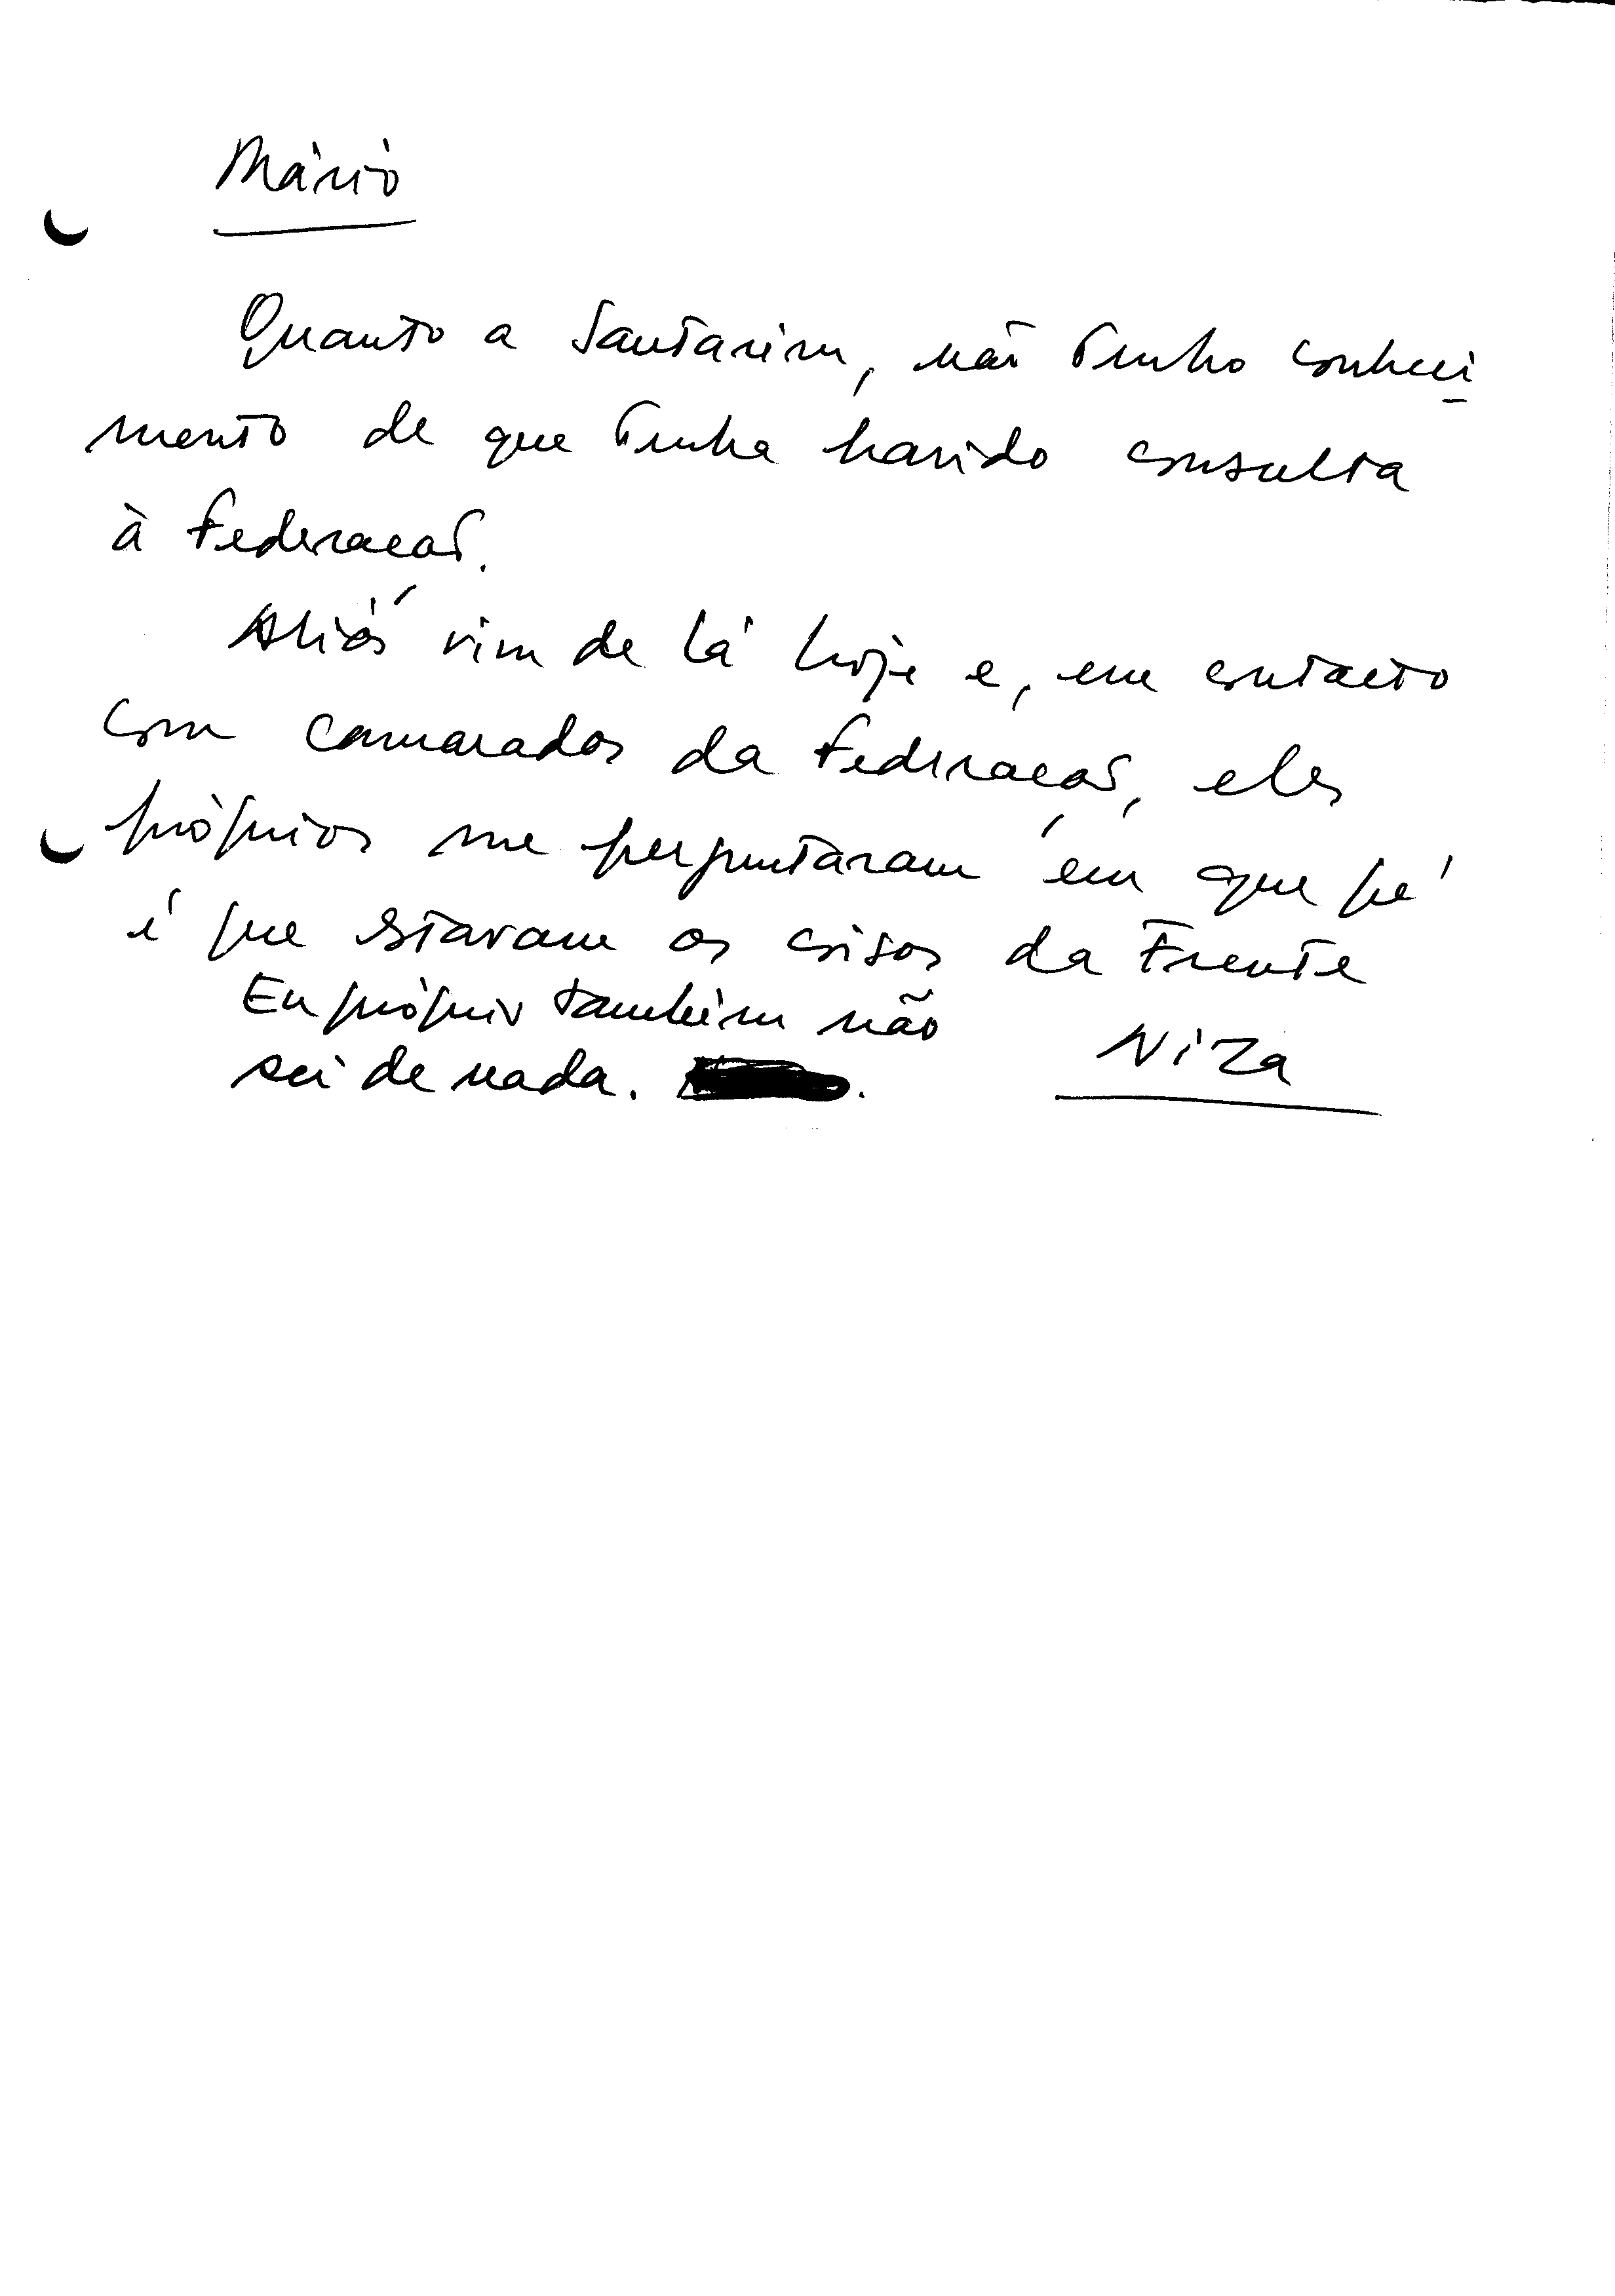 Mário
Quanto a Santarém, não tenho conheci
mento de que tenha havido consulta
à Federação.
Aliás vim de lá hoje e, em contacto
com camaradas da Federação, eles
próprios me perguntaram em que pé
é que estavam as coisas da Frente
Eu próprio também não
sei de nada.
Niza